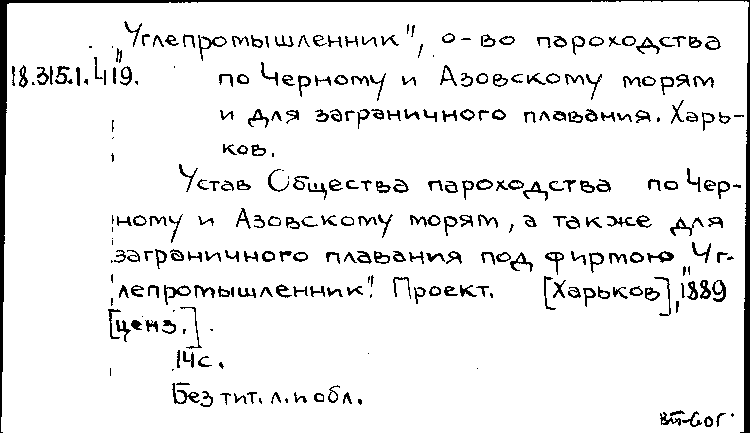 „Углепромышленник", о-во пароходства
18.315.1.419. по Черному и Азовскому морям
и для заграничного плавания. Харь-
ков.
Устав Общества пароходства по Чер-
ному и Азовскому морям, а также для
заграничного плавания под фирмою „Уг-
лепромышленник". Проект. [Харьков], 1889
[ценз.].
14с.
Без тит. л. и обл.